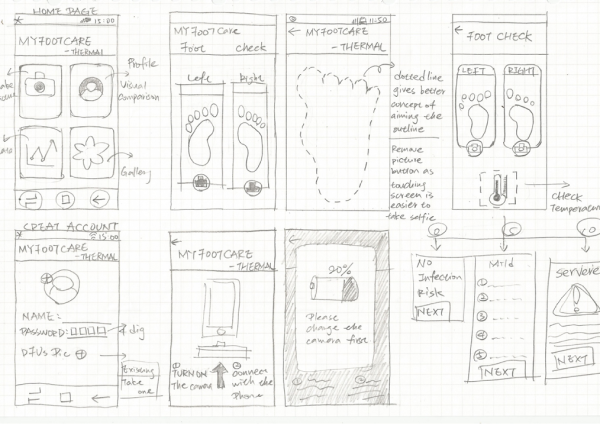 HOME PAGE
15:00
MYFOOTCARE
-THERMAL
Profile
Visual
Comparison
Gallery
MYFOOTCare
Foot check
Left
Right
11:50
MYFOOTCARE
-THERMAL
dotted line
gives better
concept of
aiming the
outline
Remove
picture
button as
touching
screen is
easier to
take selfie
FOOT CHECK
LEFT
RIGHT
CHECK
CREAT ACCOUNT
15:00
MYFOOTCARE
-THERMAL
NAME:
PASSWORD:
4 dig
DFUs Pic
Existing
Take
one
MYFOOTCARE
-THERMAL
TURN ON
The camera
connect
with the
Phone
20%
Please
change the
camera first
No
Infection
Risk
NEXT
Mild
1
2
3
4
5
NEXT
NEXT